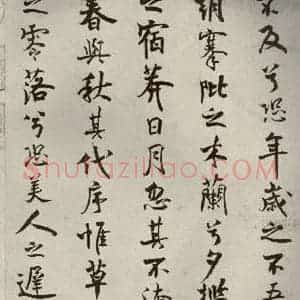 不及兮恐年歲之不吾
朝搴阰之木蘭兮夕攬
之宿莽日月忽其不淹
春與秋其代序惟草
之零落兮恐美人之遲
Shufaziliao.com